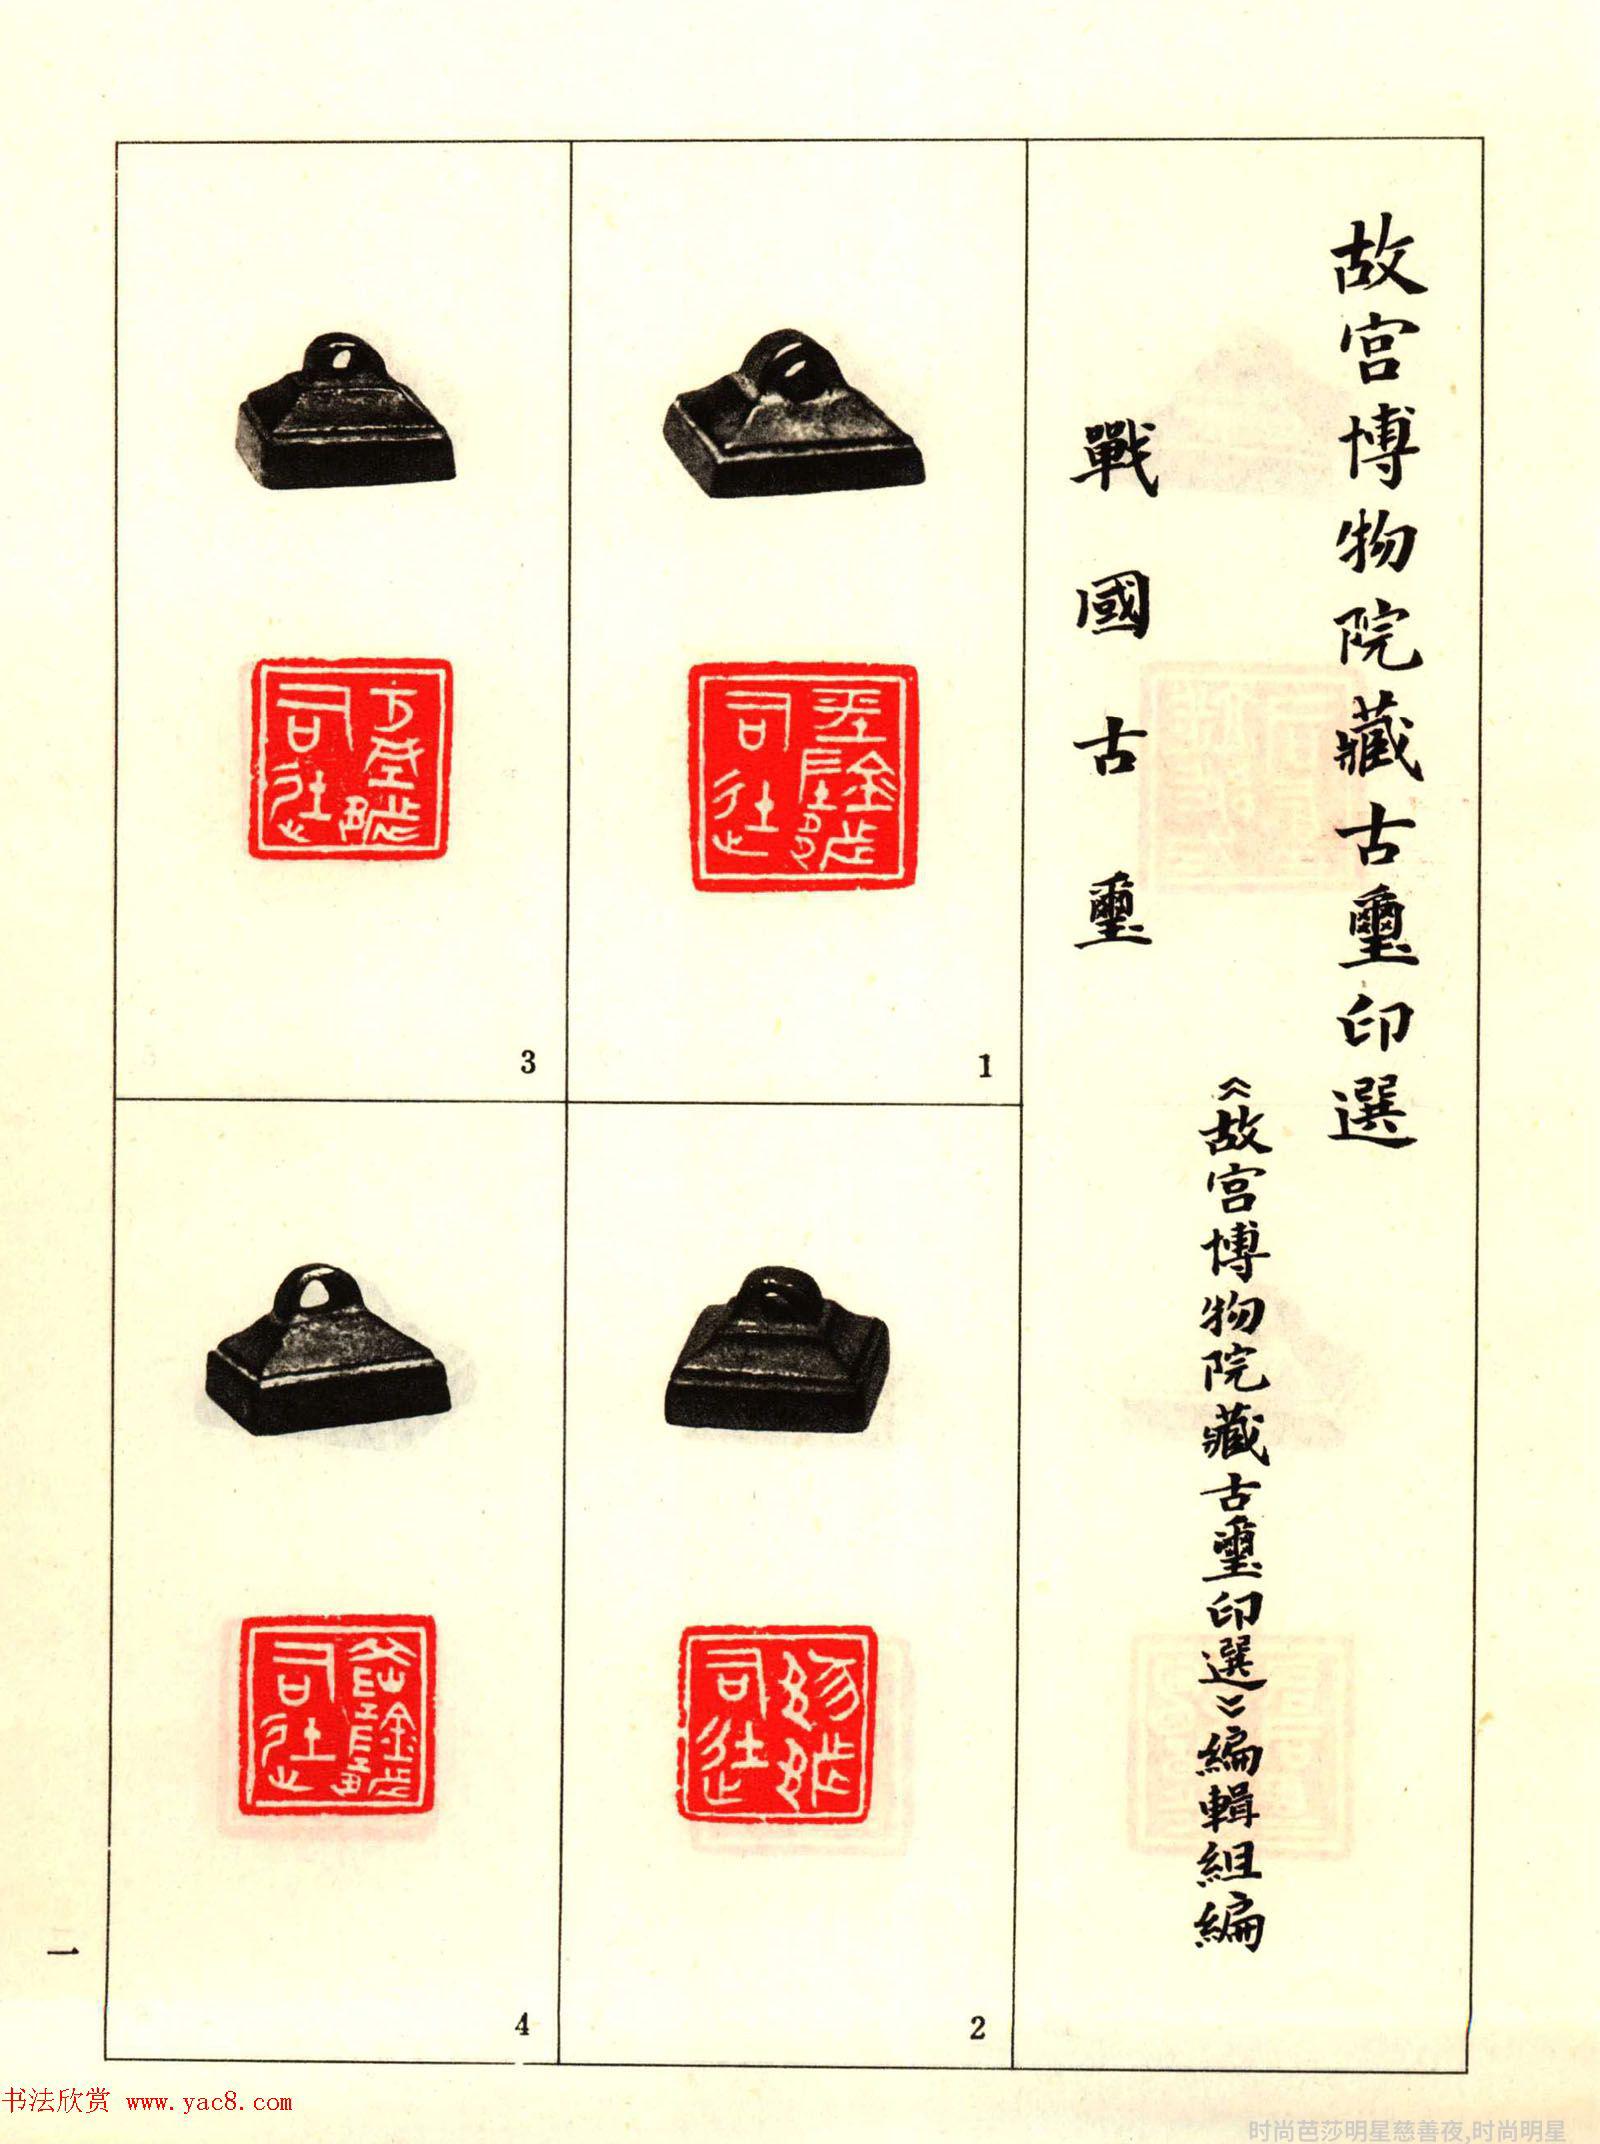 故宫博物院藏古璽印選
《故宫博物院藏古璽印選》編輯組編
戰國古璽
1
2
3
4
一
书法欣赏 www.yac8.com
时尚芭莎明星慈善夜,时尚明星